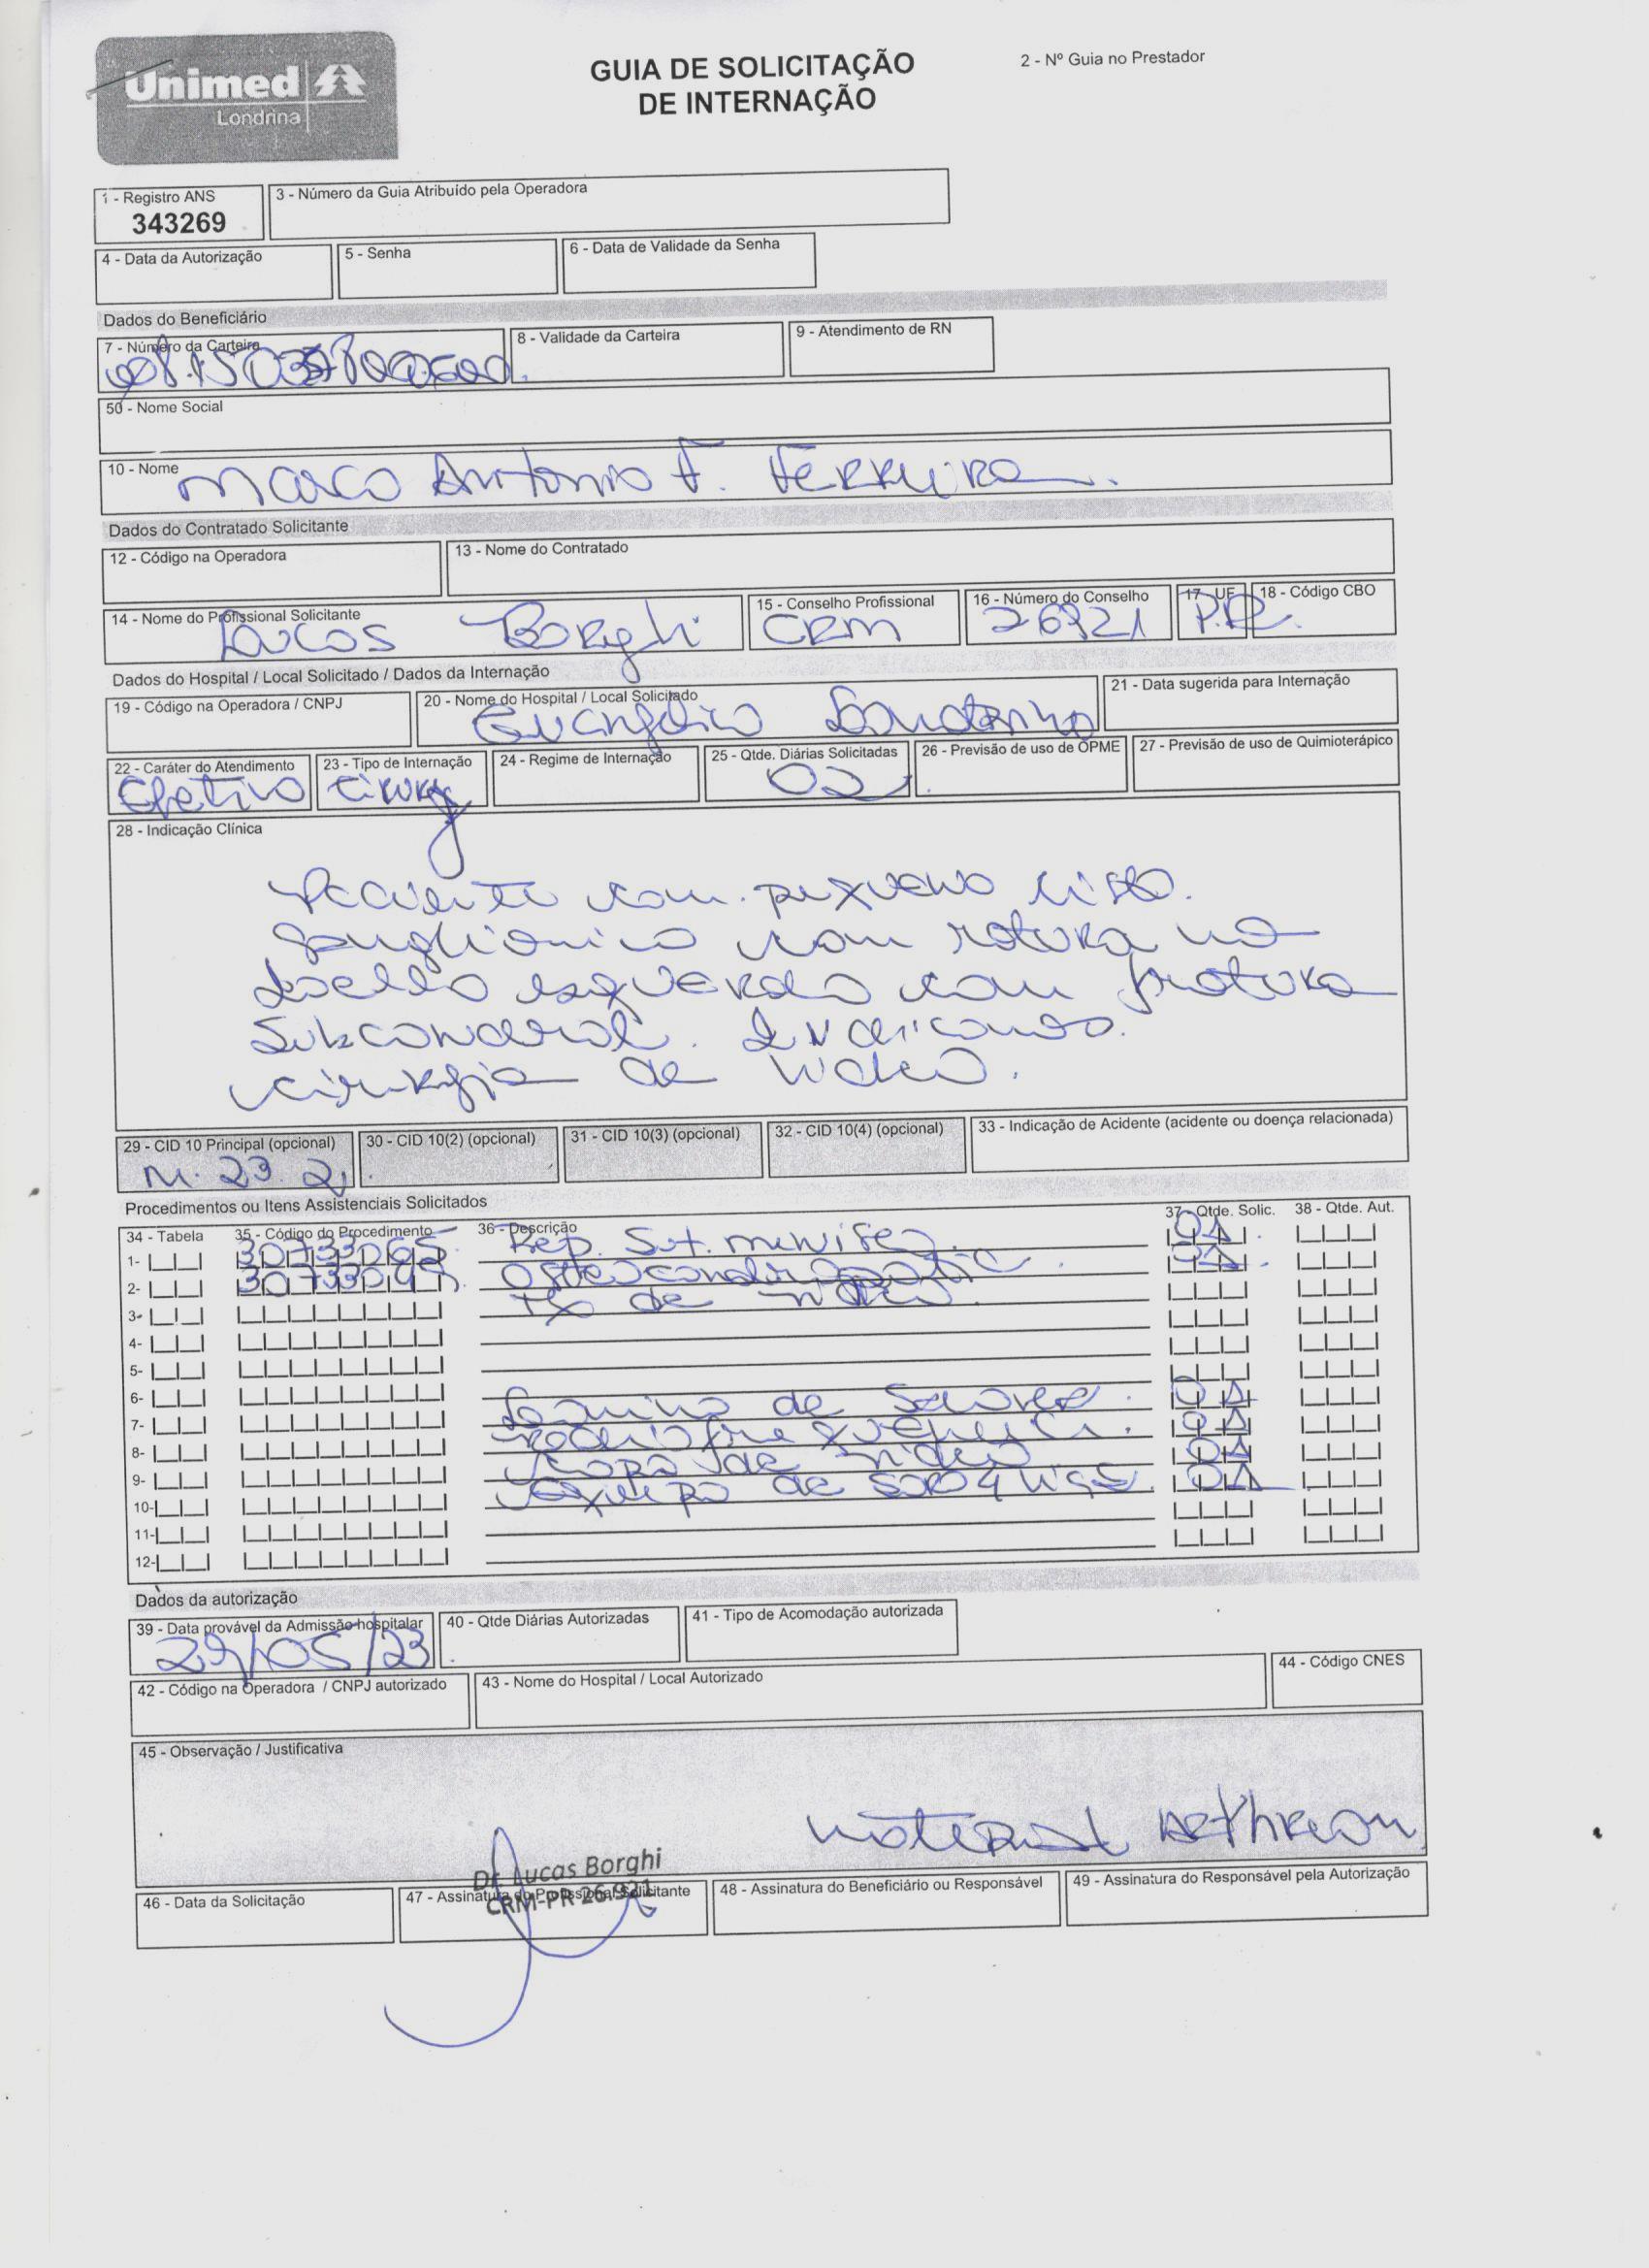 Unimed
Londrina
GUIA DE SOLICITAÇÃO
DE INTERNAÇÃO
2 - Nº Guia no Prestador
1 - Registro ANS
343269
3 - Número da Guia Atribuído pela Operadora
4 - Data da Autorização
5 - Senha
6 - Data de Validade da Senha
Dados do Beneficiário
7 - Número da Carteira
8 - Validade da Carteira
9 - Atendimento de RN
50 - Nome Social
10 - Nome
Marco Antonio F. Ferreira.
Dados do Contratado Solicitante
12 - Código na Operadora
13 - Nome do Contratado
14 - Nome do Profissional Solicitante
Lucas Borghi
15 - Conselho Profissional
CRM
16 - Número do Conselho
26921
17 - UF
PR.
18 - Código CBO
Dados do Hospital / Local Solicitado / Dados da Internação
19 - Código na Operadora / CNPJ
20 - Nome do Hospital / Local Solicitado
Evangélico Londrina
21 - Data sugerida para Internação
22 - Caráter do Atendimento
Eletivo
23 - Tipo de Internação
24 - Regime de Internação
25 - Qtde. Diárias Solicitadas
02
26 - Previsão de uso de OPME
27 - Previsão de uso de Quimioterápico
28 - Indicação Clínica
Paciente com pequeno cisto
ganglionico com rotura no
joelho esquerdo com fratura
subcondral. Indicando
cirurgia de video.
29 - CID 10 Principal (opcional)
M. 23. 2
30 - CID 10(2) (opcional)
31 - CID 10(3) (opcional)
32 - CID 10(4) (opcional)
33 - Indicação de Acidente (acidente ou doença relacionada)
Procedimentos ou Itens Assistenciais Solicitados
34 - Tabela
35 - Código do Procedimento
36 - Descrição
37 - Qtde. Solic.
38 - Qtde. Aut.
1- Rep. Sut. menisco. 01
2- Osteocondroplastia. 01
3- tx de video
4-
5-
6-
7- Lamina de Shaver. 01
8- radiofrequencia. 01
9- Capa de video 01
10- Equipo de soro 4 vias 01
11-
12-
Dados da autorização
39 - Data provável da Admissão hospitalar
29/05/23
40 - Qtde Diárias Autorizadas
41 - Tipo de Acomodação autorizada
42 - Código na Operadora / CNPJ autorizado
43 - Nome do Hospital / Local Autorizado
44 - Código CNES
45 - Observação / Justificativa
Material Arthrom
Dr. Lucas Borghi
CRM-PR 26.921
46 - Data da Solicitação
47 - Assinatura do Profissional Solicitante
48 - Assinatura do Beneficiário ou Responsável
49 - Assinatura do Responsável pela Autorização